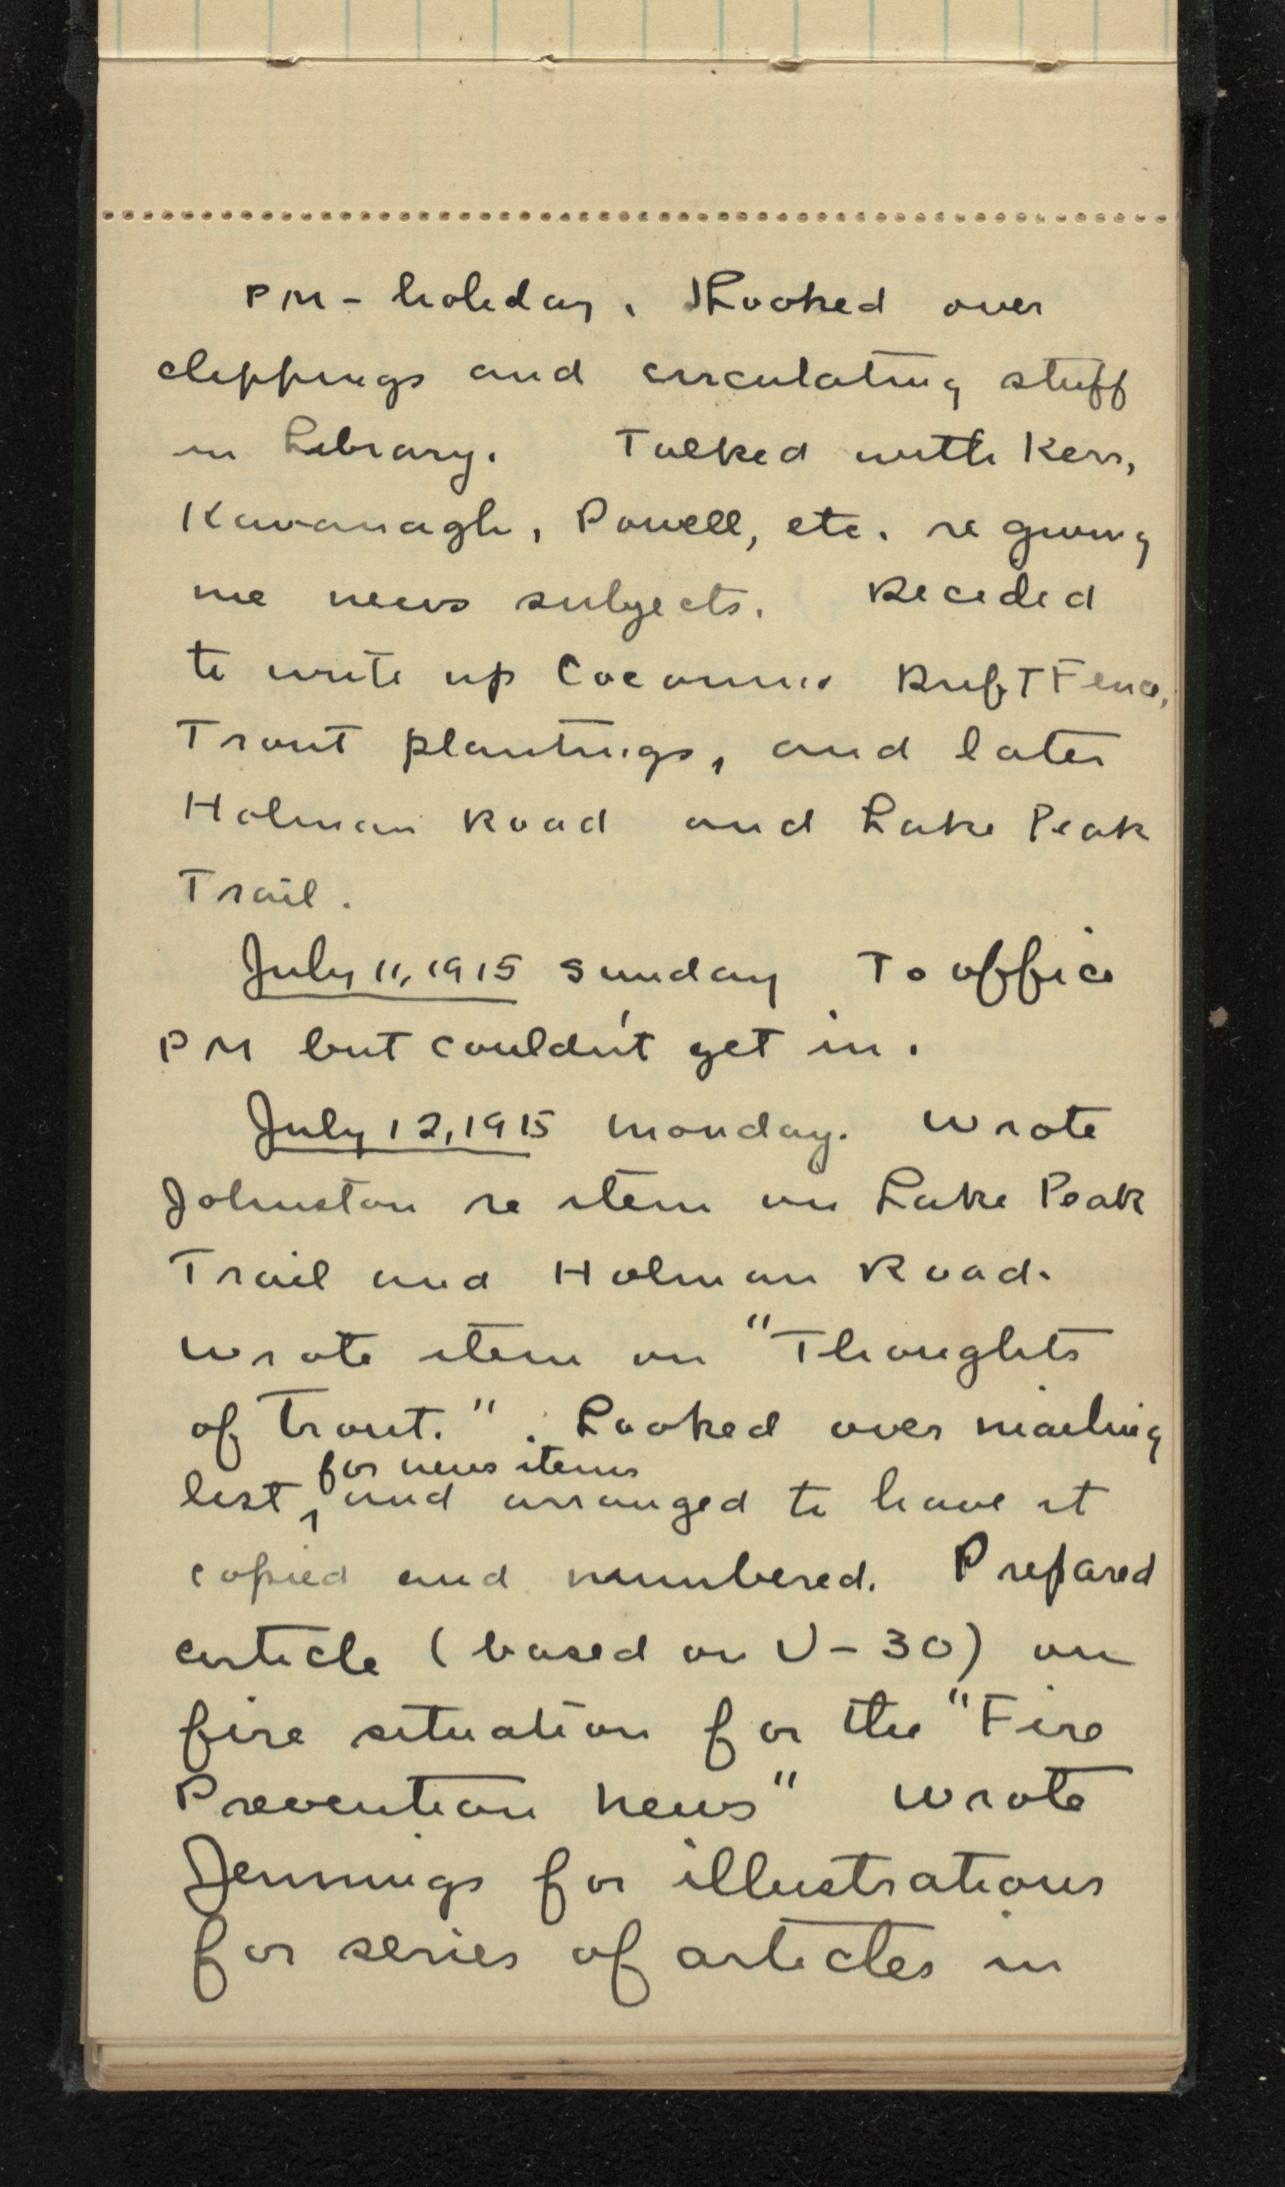 PM - holiday. Looked over
clippings and circulating stuff
in Library. Talked with Kerr,
Kavanagh, Powell, etc. re giving
me news subjects. Decided
to write up Coconino Drift Fence,
Trout plantings, and later
Holman Road and Lake Peak
Trail.
July 11, 1915 Sunday To office
PM but couldn't get in.
July 12, 1915 Monday. Wrote
Johnston re item on Lake Peak
Trail and Holman Road.
Wrote item on "Thoughts
of Trout." Looked over mailing
for news items
list, and arranged to have it
copied and numbered. Prepared
article (based on U-30) on
fire situation for the "Fire
Prevention News" Wrote
Jennings for illustrations
for series of articles in